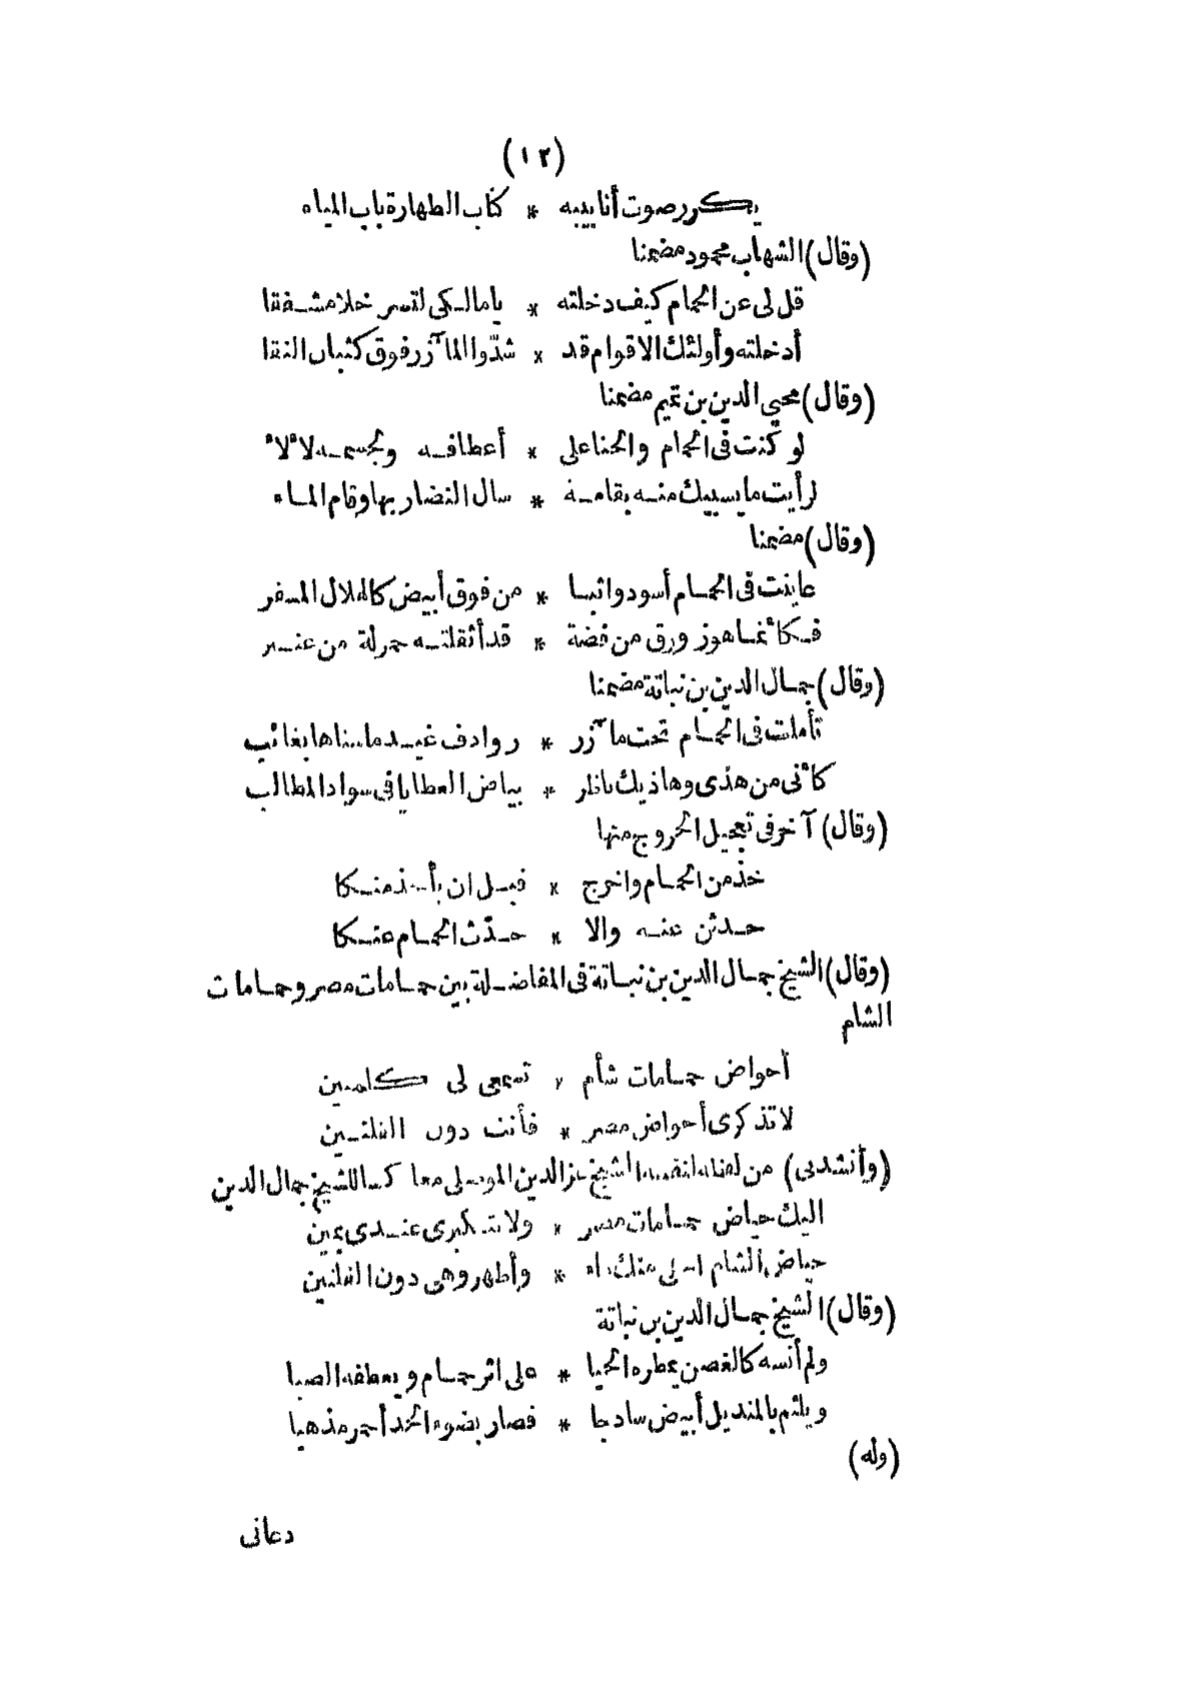 (١٢)
يكرر صوت أنابيبه * كتاب الطهارة باب المياه
(وقال) الشهاب محمود مضمنا
قل لى عن الحمام كيف دخلته * يامالكى لتسر خلا مشفقا
أدخلته وأولئك الاقوام قد * شدّوا المآزر فوق كثبان النقا
(وقال) محيي الدين بن تميم مضمنا
لو كنت فى الحمام والحنا على * أعطافه ولجسمه لالاء
لرأيت ما يسبيك منه بقامة * سال النضار بها وقام الماء
(وقال) مضمنا
عاينت فى الحمام أسود واثبا * من فوق أبيض كالهلال المسفر
فكأنما هو زورق من فضة * قد أثقلته حمولة من عنبر
(وقال) جمال الدين بن نباتة مضمنا
تأملت فى الحمام تحت مآزر * روادف غيد ماسناها بغائب
كأنى من هذى وهاذيك ناظر * بياض العطايا فى سواد المطالب
(وقال) آخر فى تعجيل الخروج منها
خذ من الحمام واخرج * قبل ان يأخذ منكا
حدثن عنه والا * حدّث الحمام عنكا
(وقال) الشيخ جمال الدين بن نباتة فى المفاضلة بين حمامات مصر وحمامات
الشام
أحواض حمامات شأم * تسمعى لى كلمتين
لا تذكرى أحواض مصر * فأنت دون القلتين
(وأنشدنى) من لفظه لنفسه الشيخ عز الدين الموصلى معاكسا للشيخ جمال الدين
اليك حياض حمامات مصر * ولا تتكبرى عندى بمين
حياض الشام احلى منك ماء * وأطهر وهى دون القلتين
(وقال) الشيخ جمال الدين بن نباتة
ولم أنسه كالغصن يمطره الحيا * على اثر حمام ويعطفه الصبا
ويلثم بالمنديل أبيض ساذجا * فصار بضوء الخد أحمر مذهبا
(وله)
دعانى